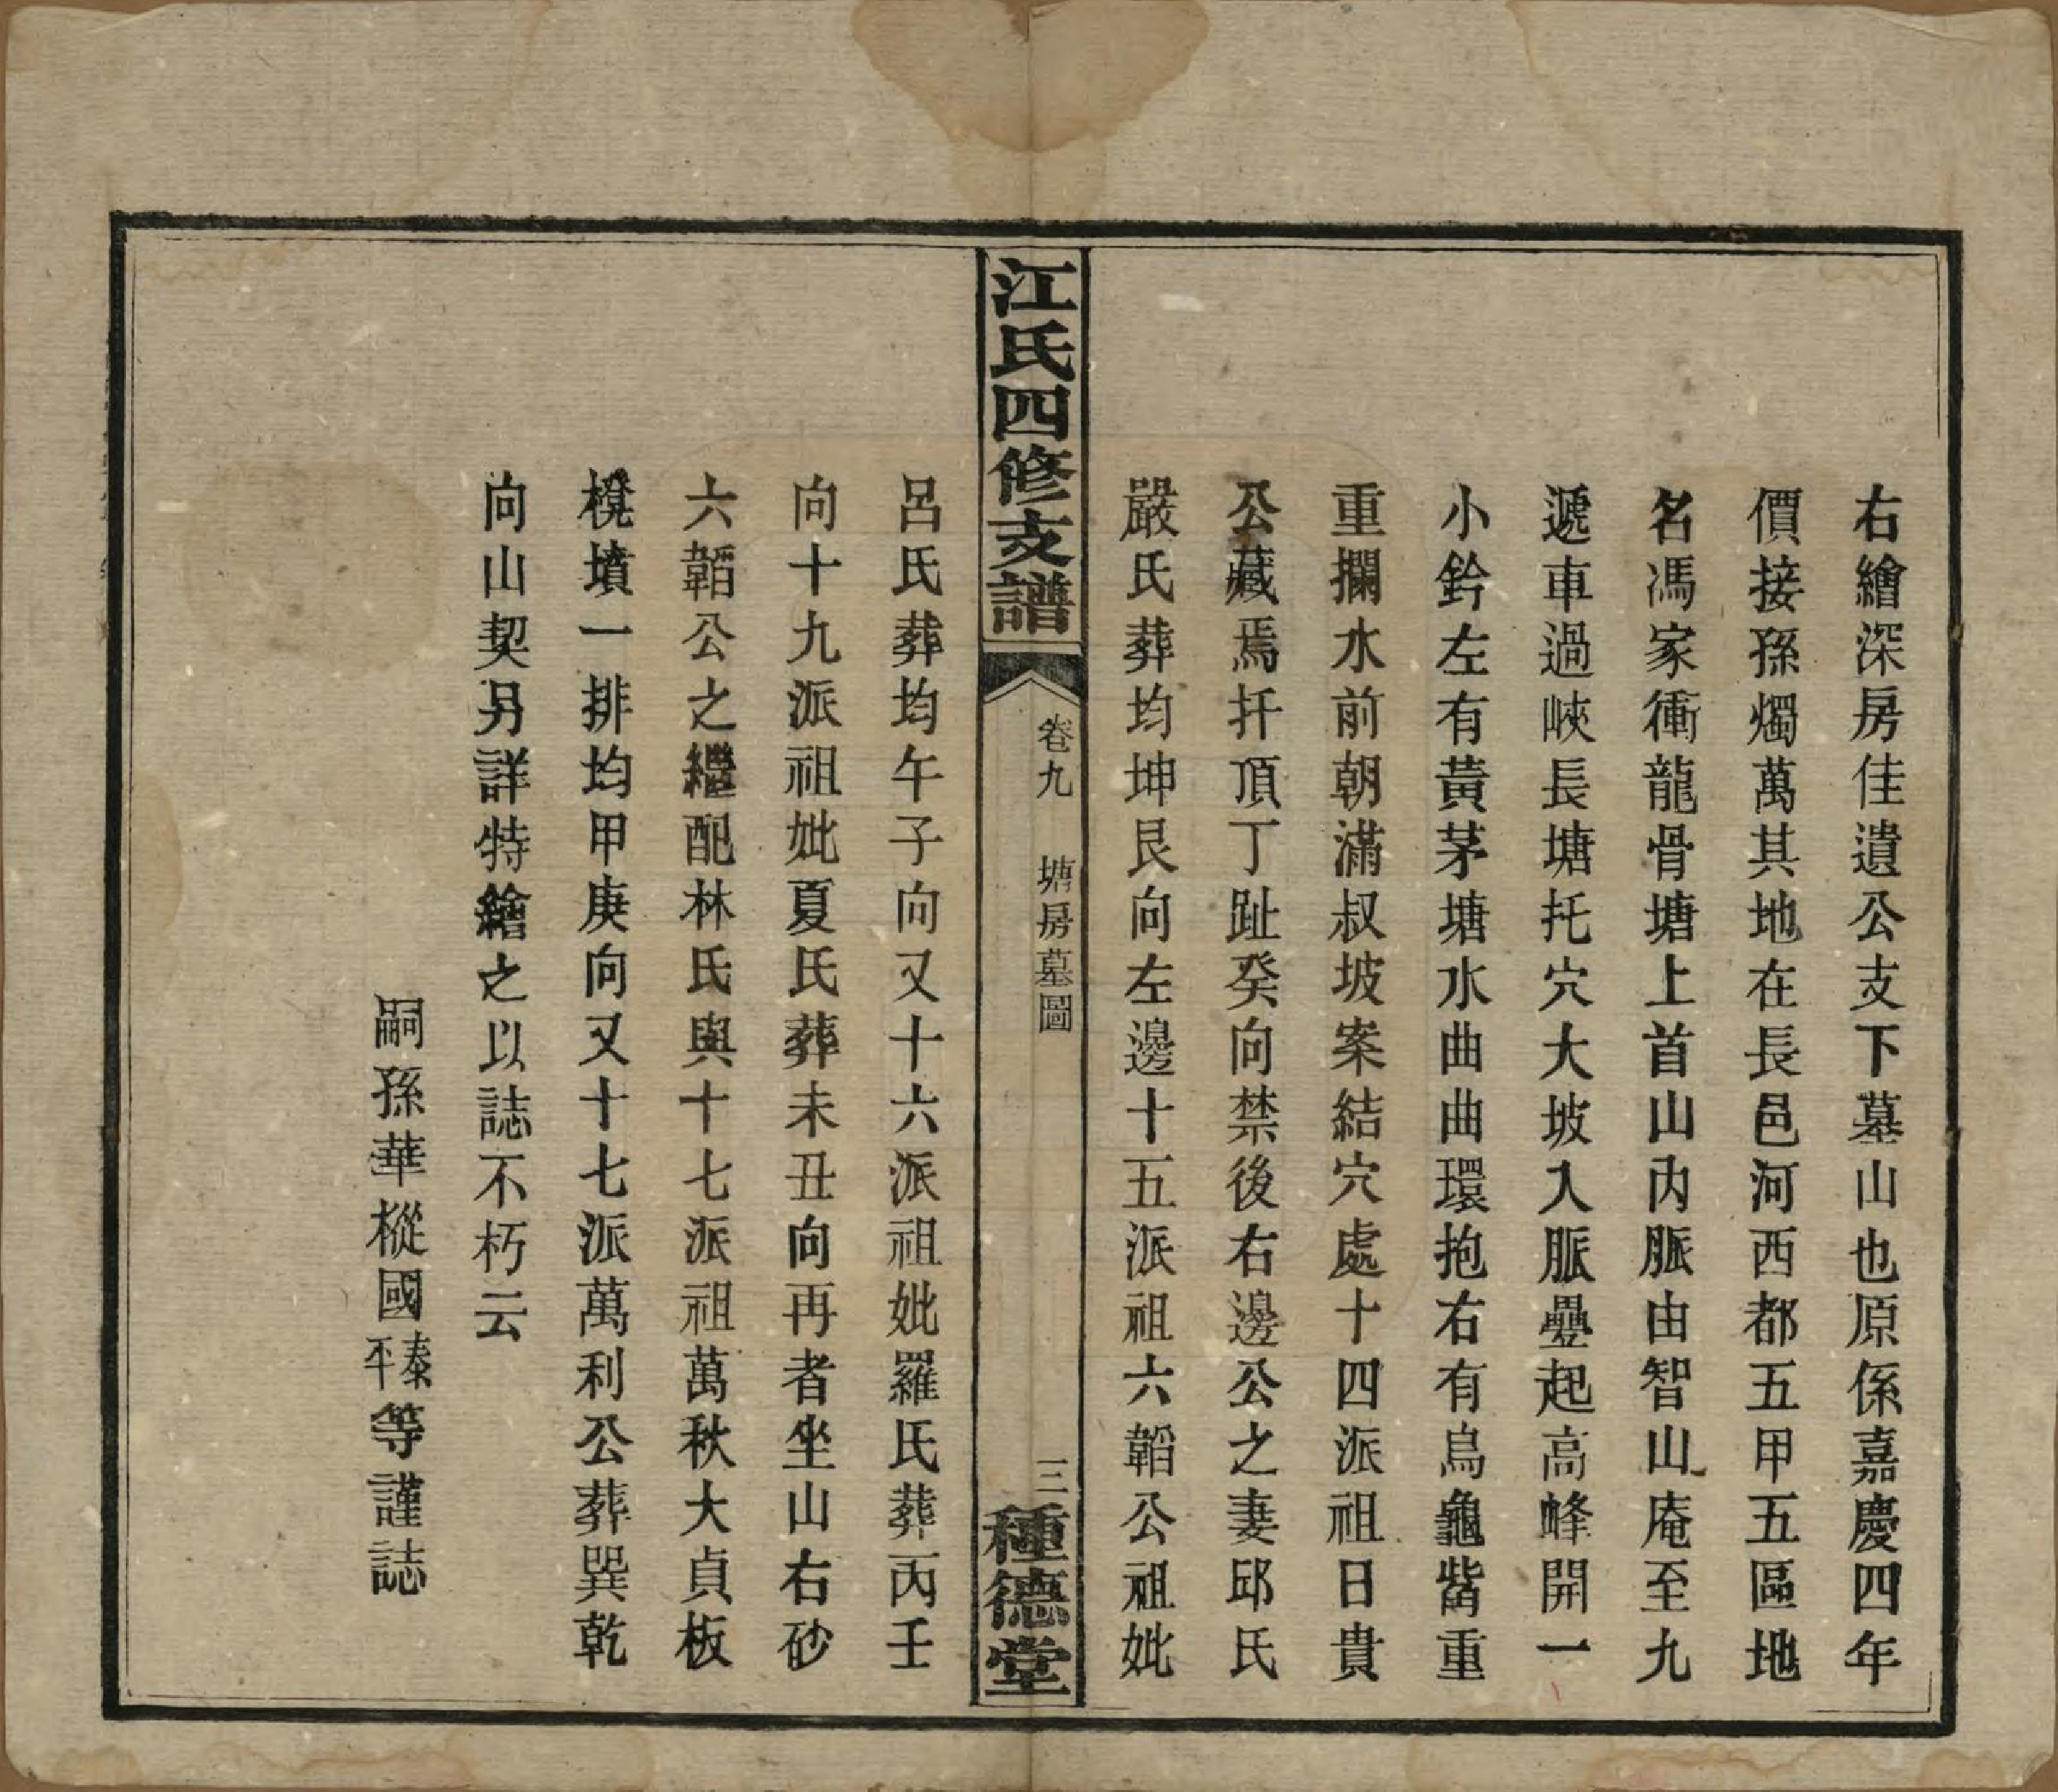 右繪深房佳遺公支下墓山也原係嘉慶四年
價接孫燭萬其地在長邑河西都五甲五區地
名馮家衝龍骨塘上首山內脈由智山庵至九
遞車過峽長塘托穴大坡入脈疊起高峰開一
小鈐左有黃茅塘水曲曲環抱右有烏龜觜重
重攔水前朝滿叔坡案結穴處十四派祖日貴
公藏焉扦頂丁趾癸向禁後右邊公之妻邱氏
嚴氏葬均坤艮向左邊十五派祖六韜公祖妣
江氏四修支譜
卷九
塘房墓圖
三
種德堂
呂氏葬均午子向又十六派祖妣羅氏葬丙壬
向十九派祖妣夏氏葬未丑向再者坐山右砂
六韜公之繼配林氏與十七派祖萬秋大貞板
櫈墳一排均甲庚向又十七派萬利公葬巽乾
向山契另詳特繪之以誌不朽云
嗣孫華樅國泰平等謹誌